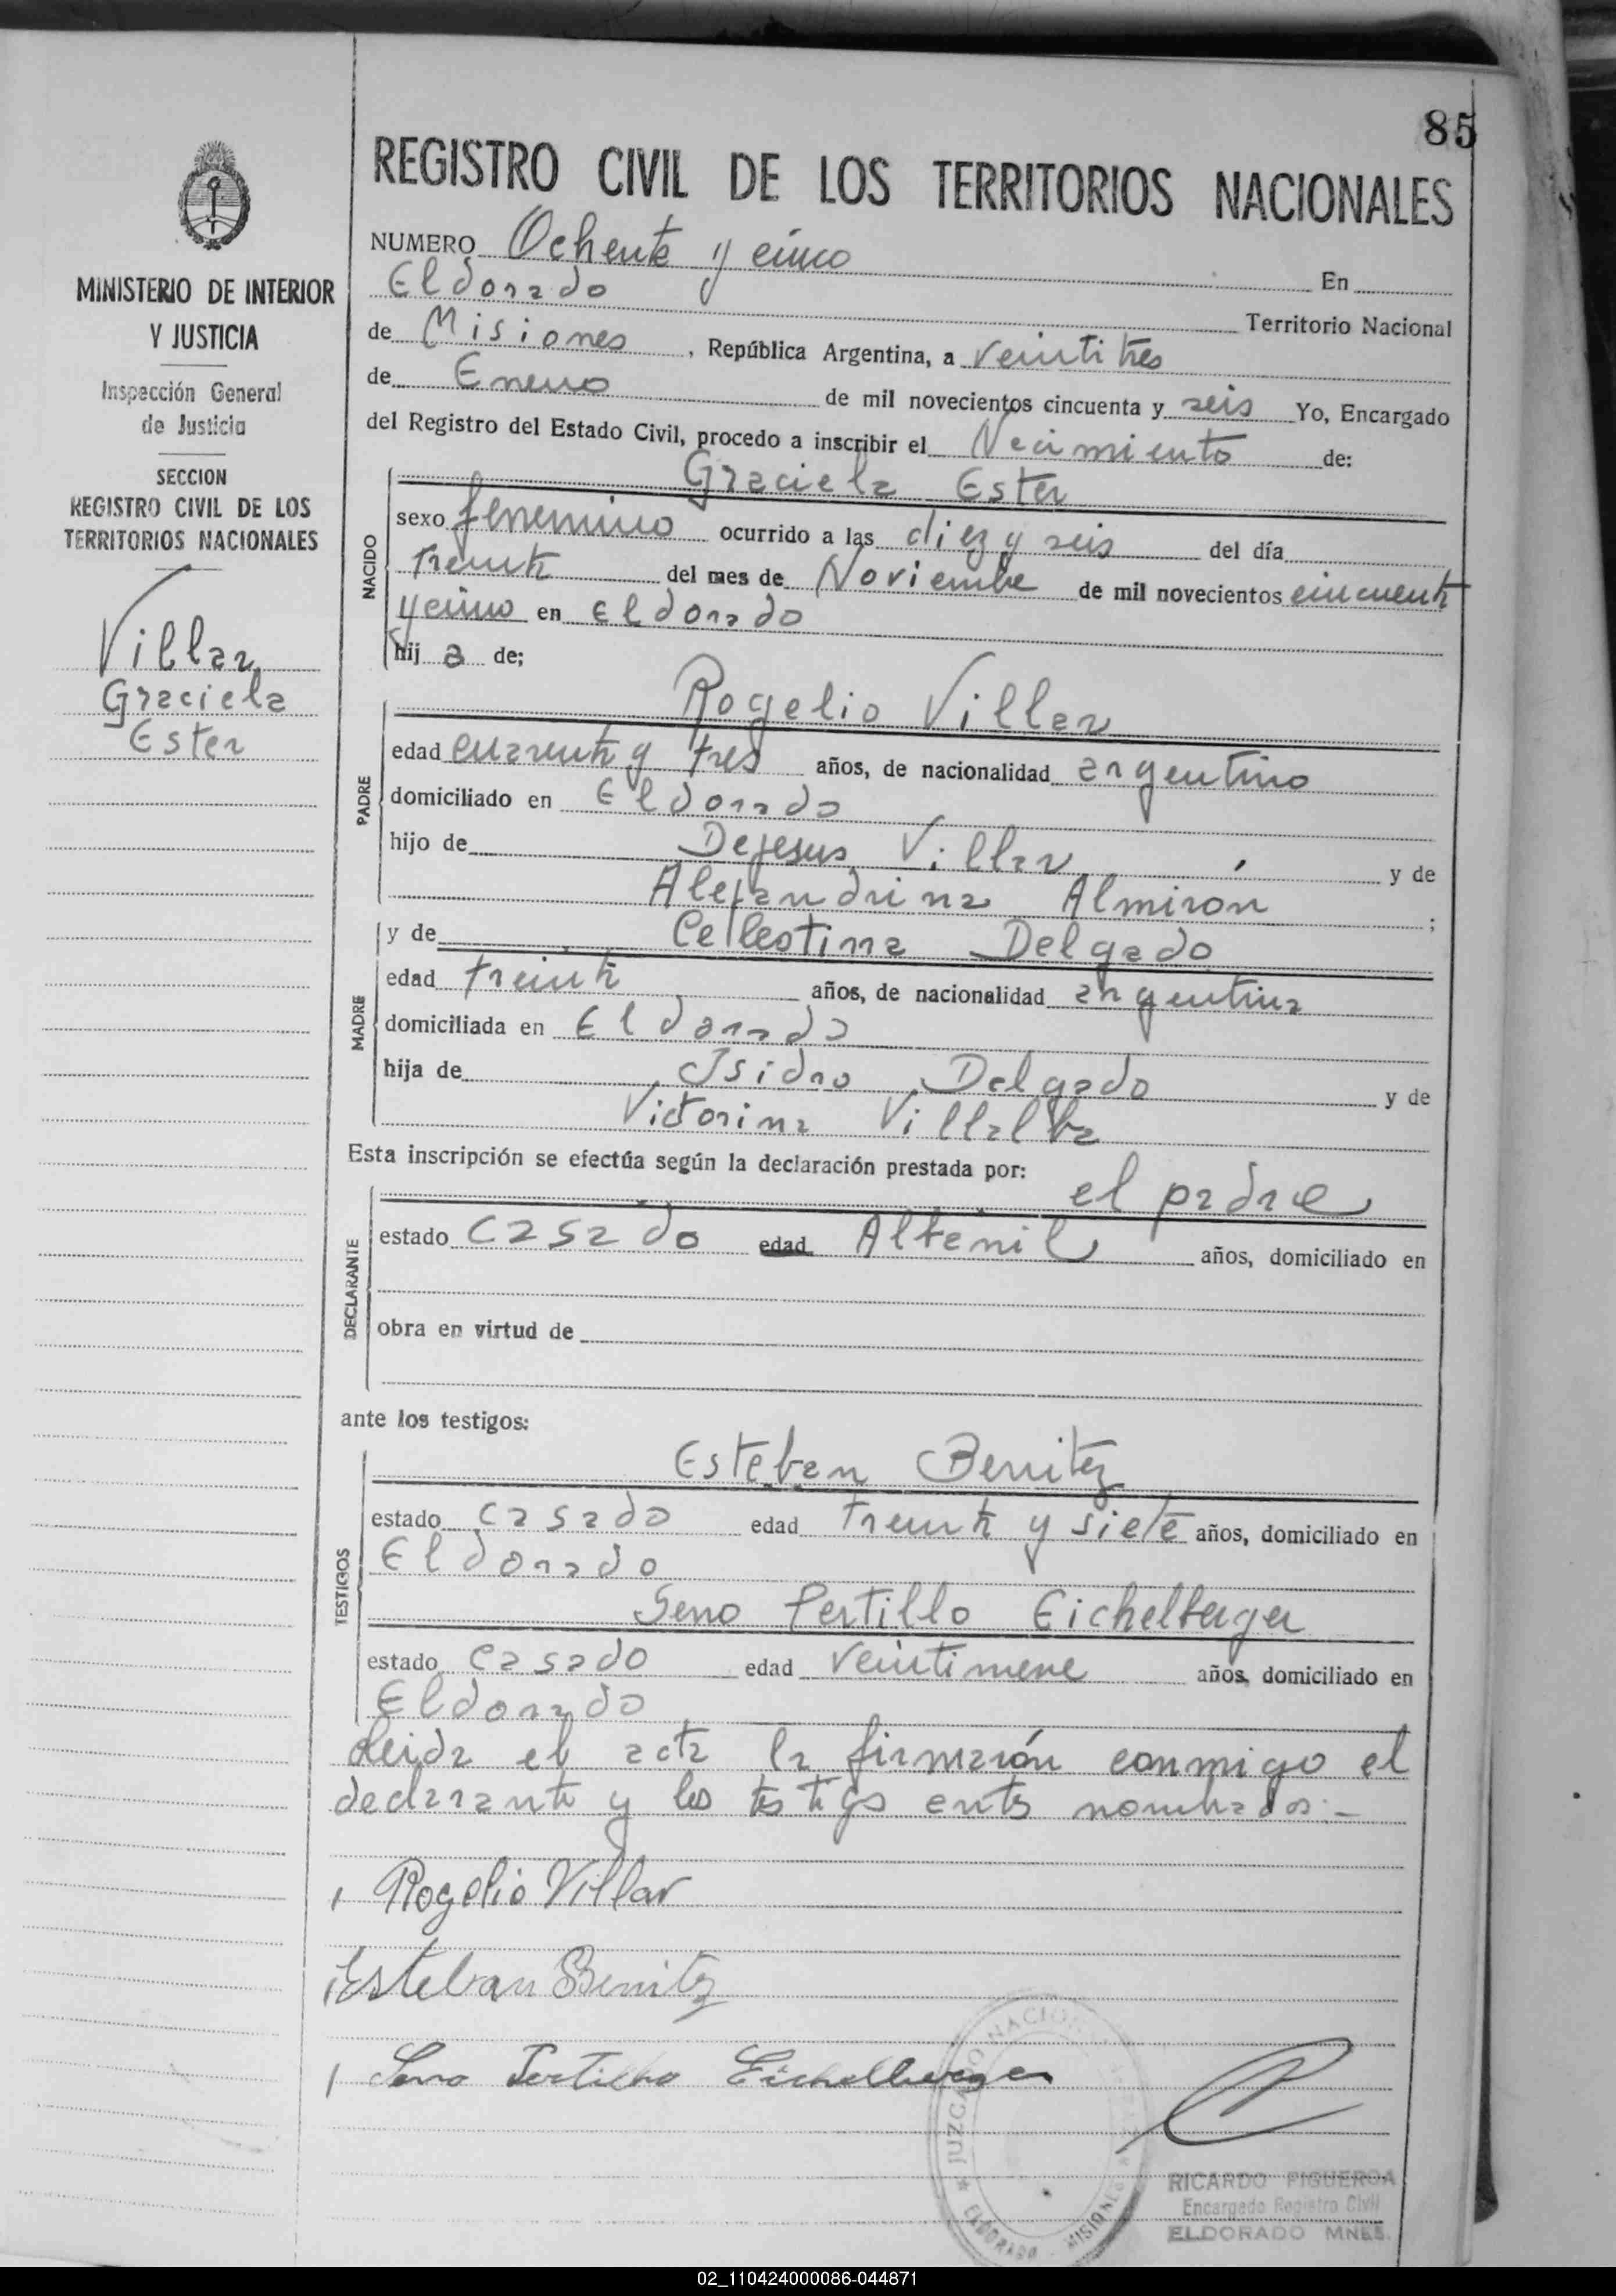 85
REGISTRO CIVIL DE LOS TERRITORIOS NACIONALES
MINISTERIO DE INTERIOR
Y JUSTICIA
Inspección General
de Justicia
SECCION
REGISTRO CIVIL DE LOS
TERRITORIOS NACIONALES
Villar
Graciela
Ester
NUMERO Ochenta y cinco En
Eldorado Territorio Nacional
de Misiones, República Argentina, a veintitres
de Enero de mil novecientos cincuenta y seis Yo, Encargado
del Registro del Estado Civil, procedo a inscribir el Nacimiento de:
Graciela Ester
NACIDO
sexo femenino ocurrido a las diez y seis del día
treinta del mes de Noviembre de mil novecientos cincuenta
y cinco en Eldorado
hij a de;
Rogelio Villar
PADRE
edad cuarenta y tres años, de nacionalidad argentino
domiciliado en Eldorado
hijo de Dejesus Villar y de
Alejandrina Almirón ;
y de Cellestina Delgado
MADRE
edad treinta años, de nacionalidad argentina
domiciliada en Eldorado
hija de Isidro Delgado y de
Victorina Villalba
Esta inscripción se efectúa según la declaración prestada por:
el padre
DECLARANTE
estado casado edad Albañil años, domiciliado en
obra en virtud de
ante los testigos:
Esteban Benitez
TESTIGOS
estado casado edad treinta y siete años, domiciliado en
Eldorado
Seno Pertillo Eichelberger
estado casado edad veintinueve años, domiciliado en
Eldorado
Leida el acta la firmarón conmigo el
declarante y los testigos antes nombrados.-
Rogelio Villar
Esteban Benitez
Seno Eichelberger
JUZGADO NACION
ELDORADO - MISIONES
RICARDO FIGUEROA
Encargado Registro Civil
ELDORADO MNES.
02_110424000086-044871